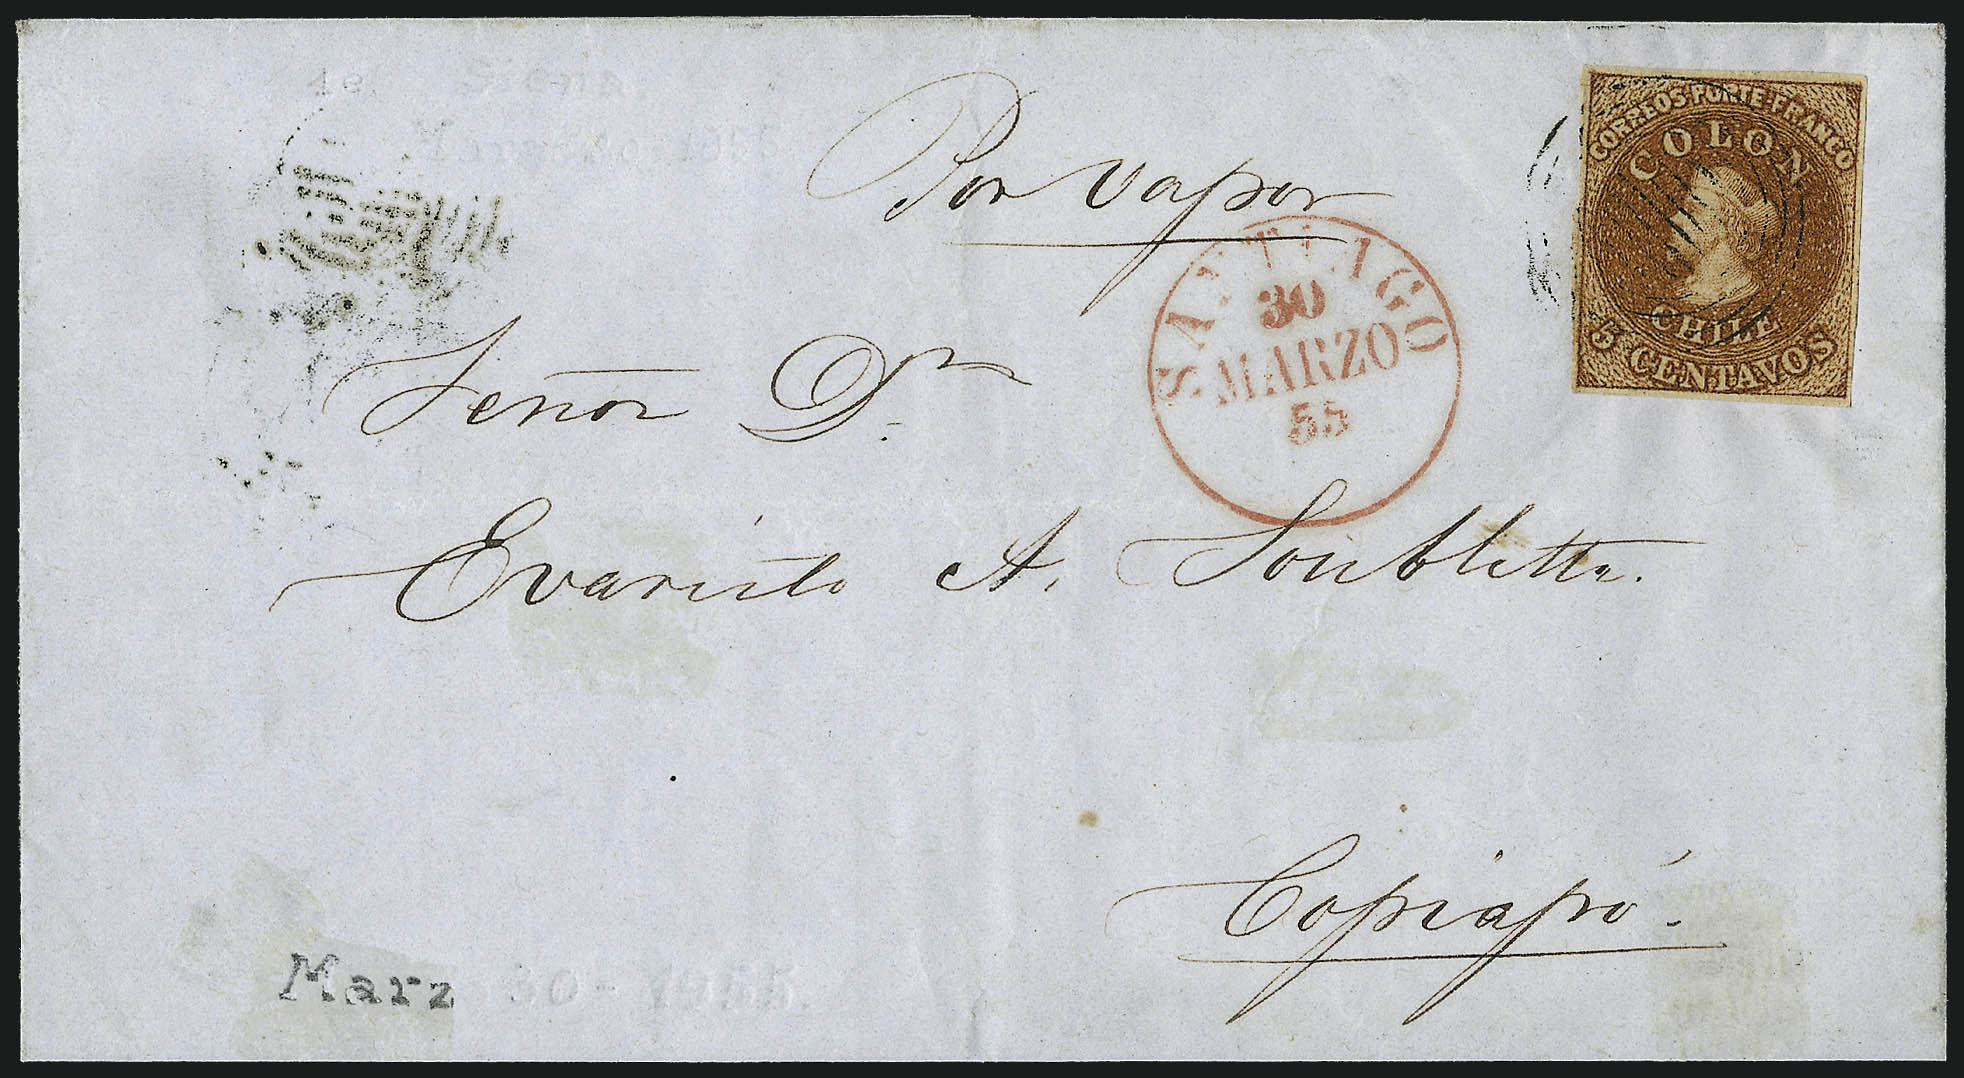 Por vapor
CORREOS PORTE FRANCO
COLON
CHILE
5 CENTAVOS
SANTIAGO
30
MARZO
55
Señor Dn.
Evaristo A. Soublette.
Copiapó.
Marz 30-1955